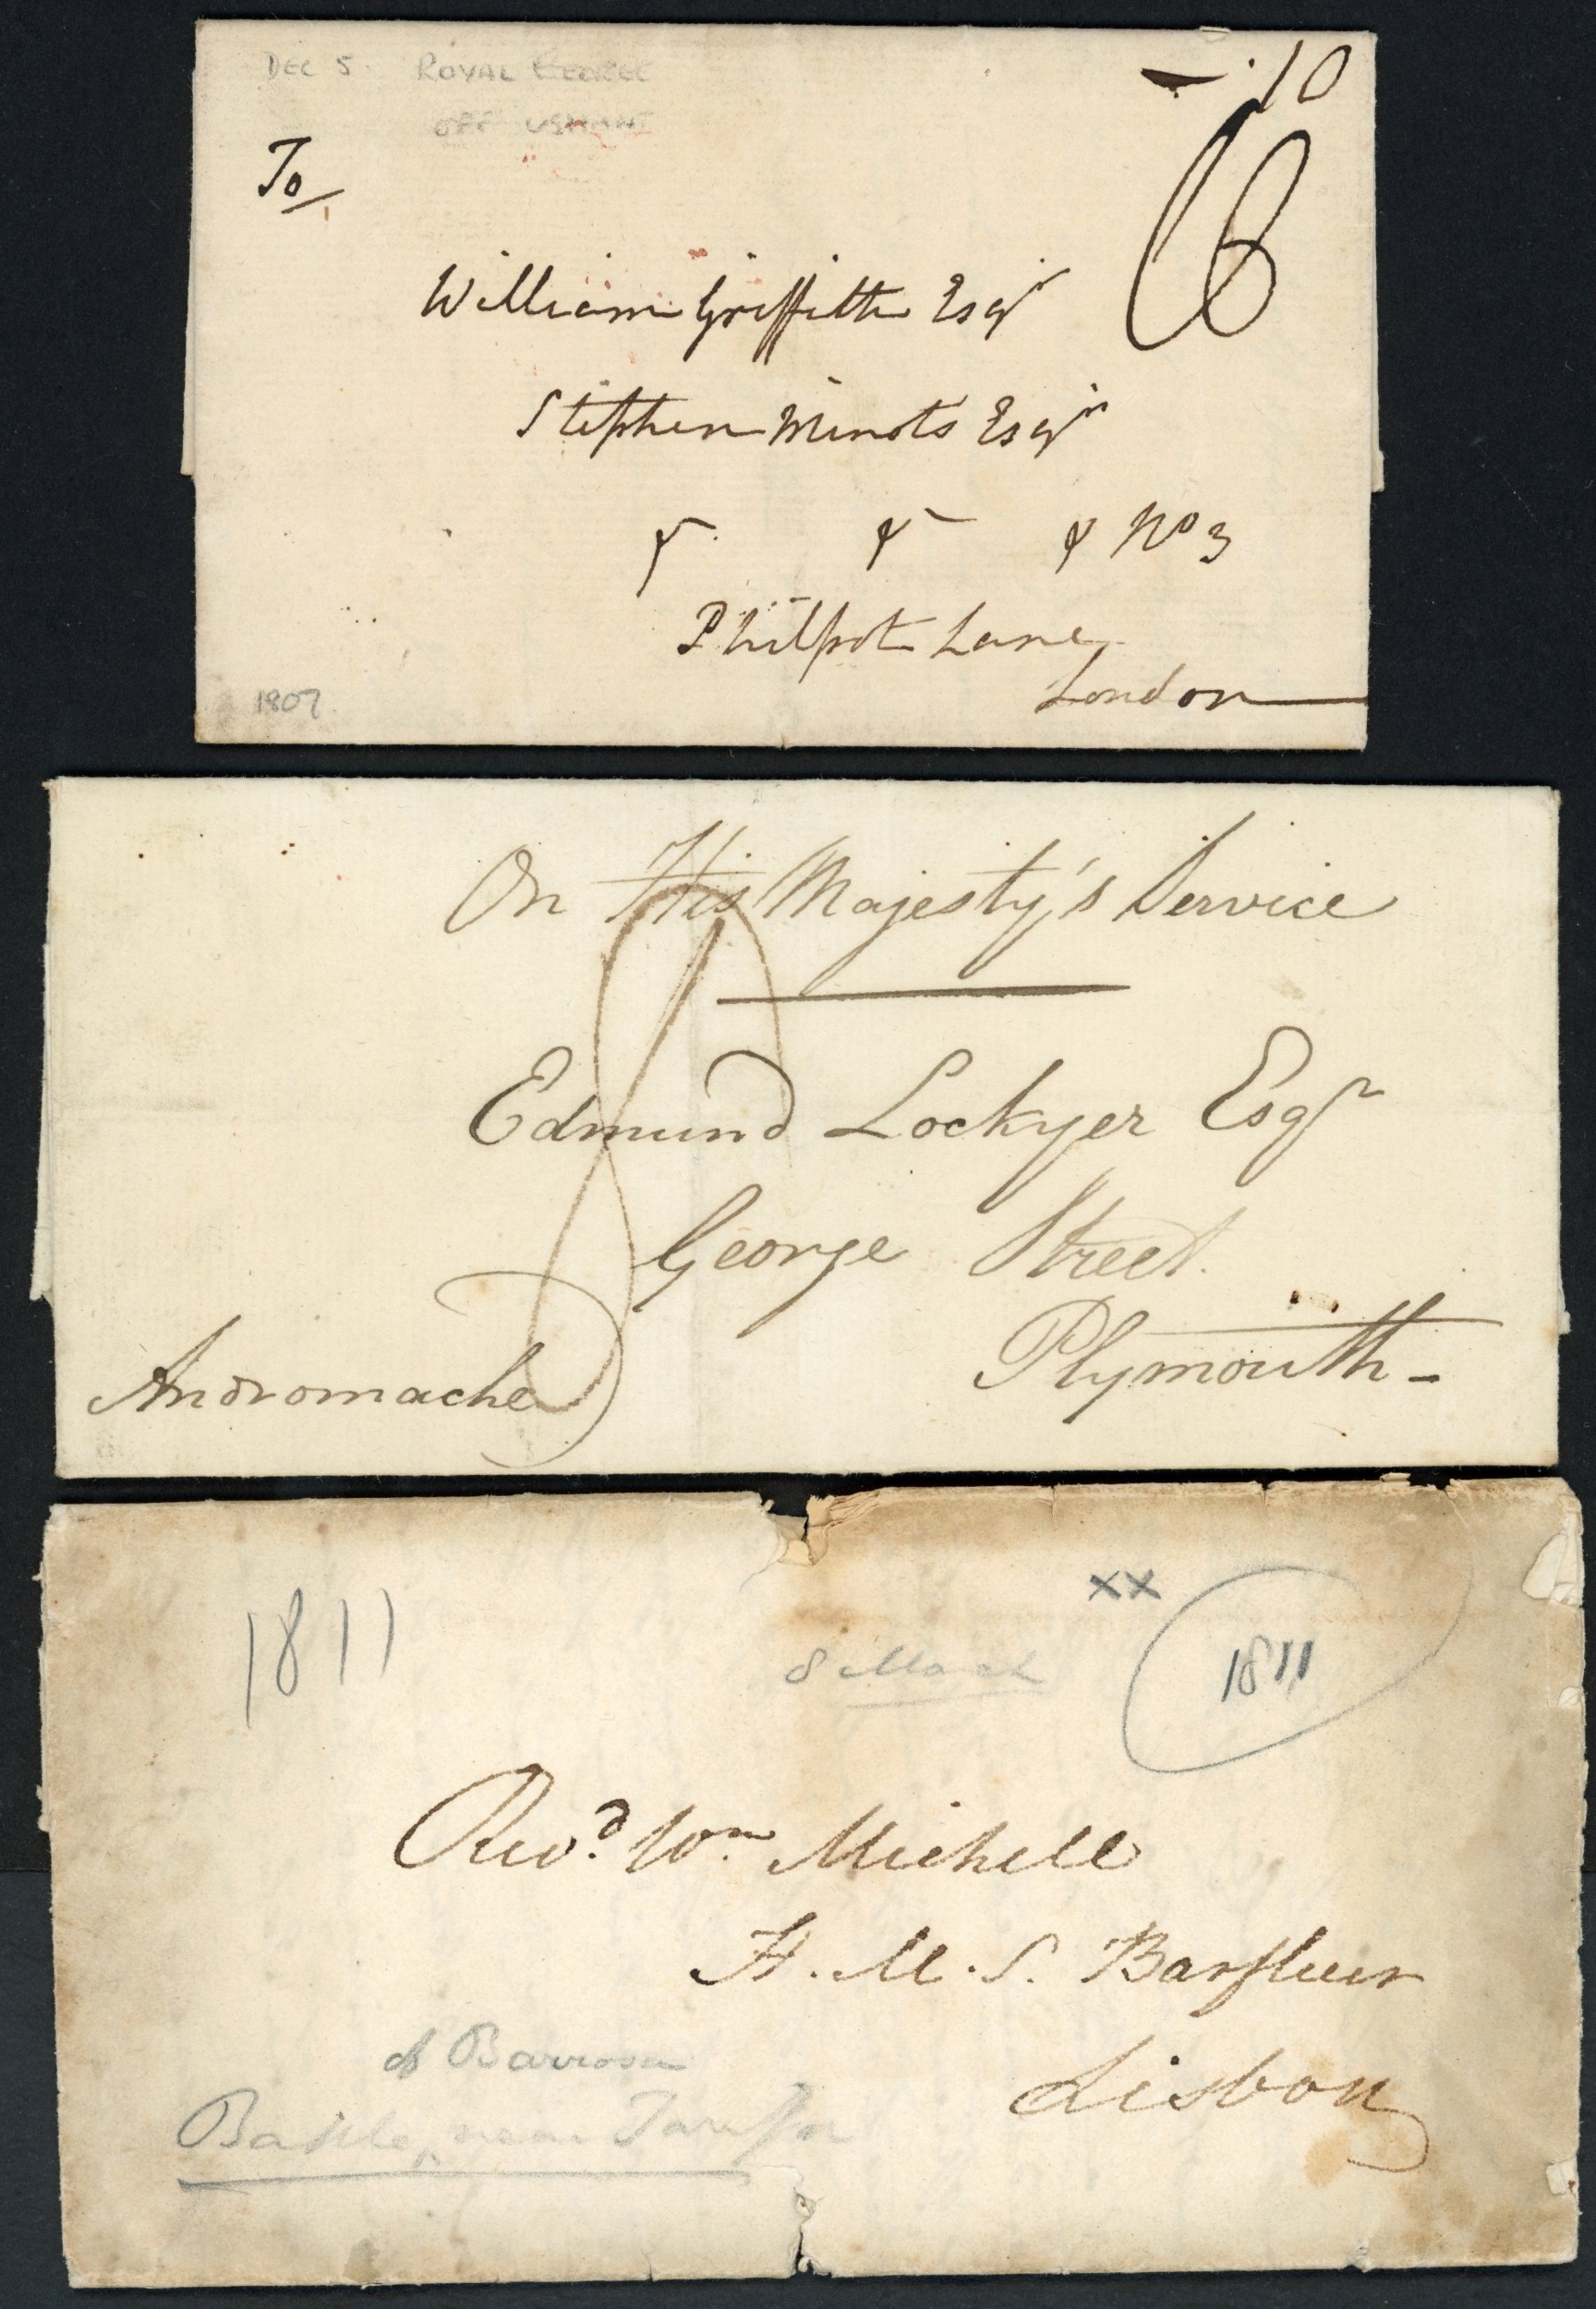 DEC 5. ROYAL GEORGE
OFF USHANT
10
To
William Griffith Esqr
Stephen Minots Esqr
& & & No 3
Philpot Lane
London
1807
On His Majesty's Service
Edmund Lockyer Esqr
George Street.
Plymouth -
Andromache
1811
xx
8 March
1811
Revd. Wm. Michell
H. M. S. Barfleur
Lisbon
of Barrosa
Battle, near Tarifa